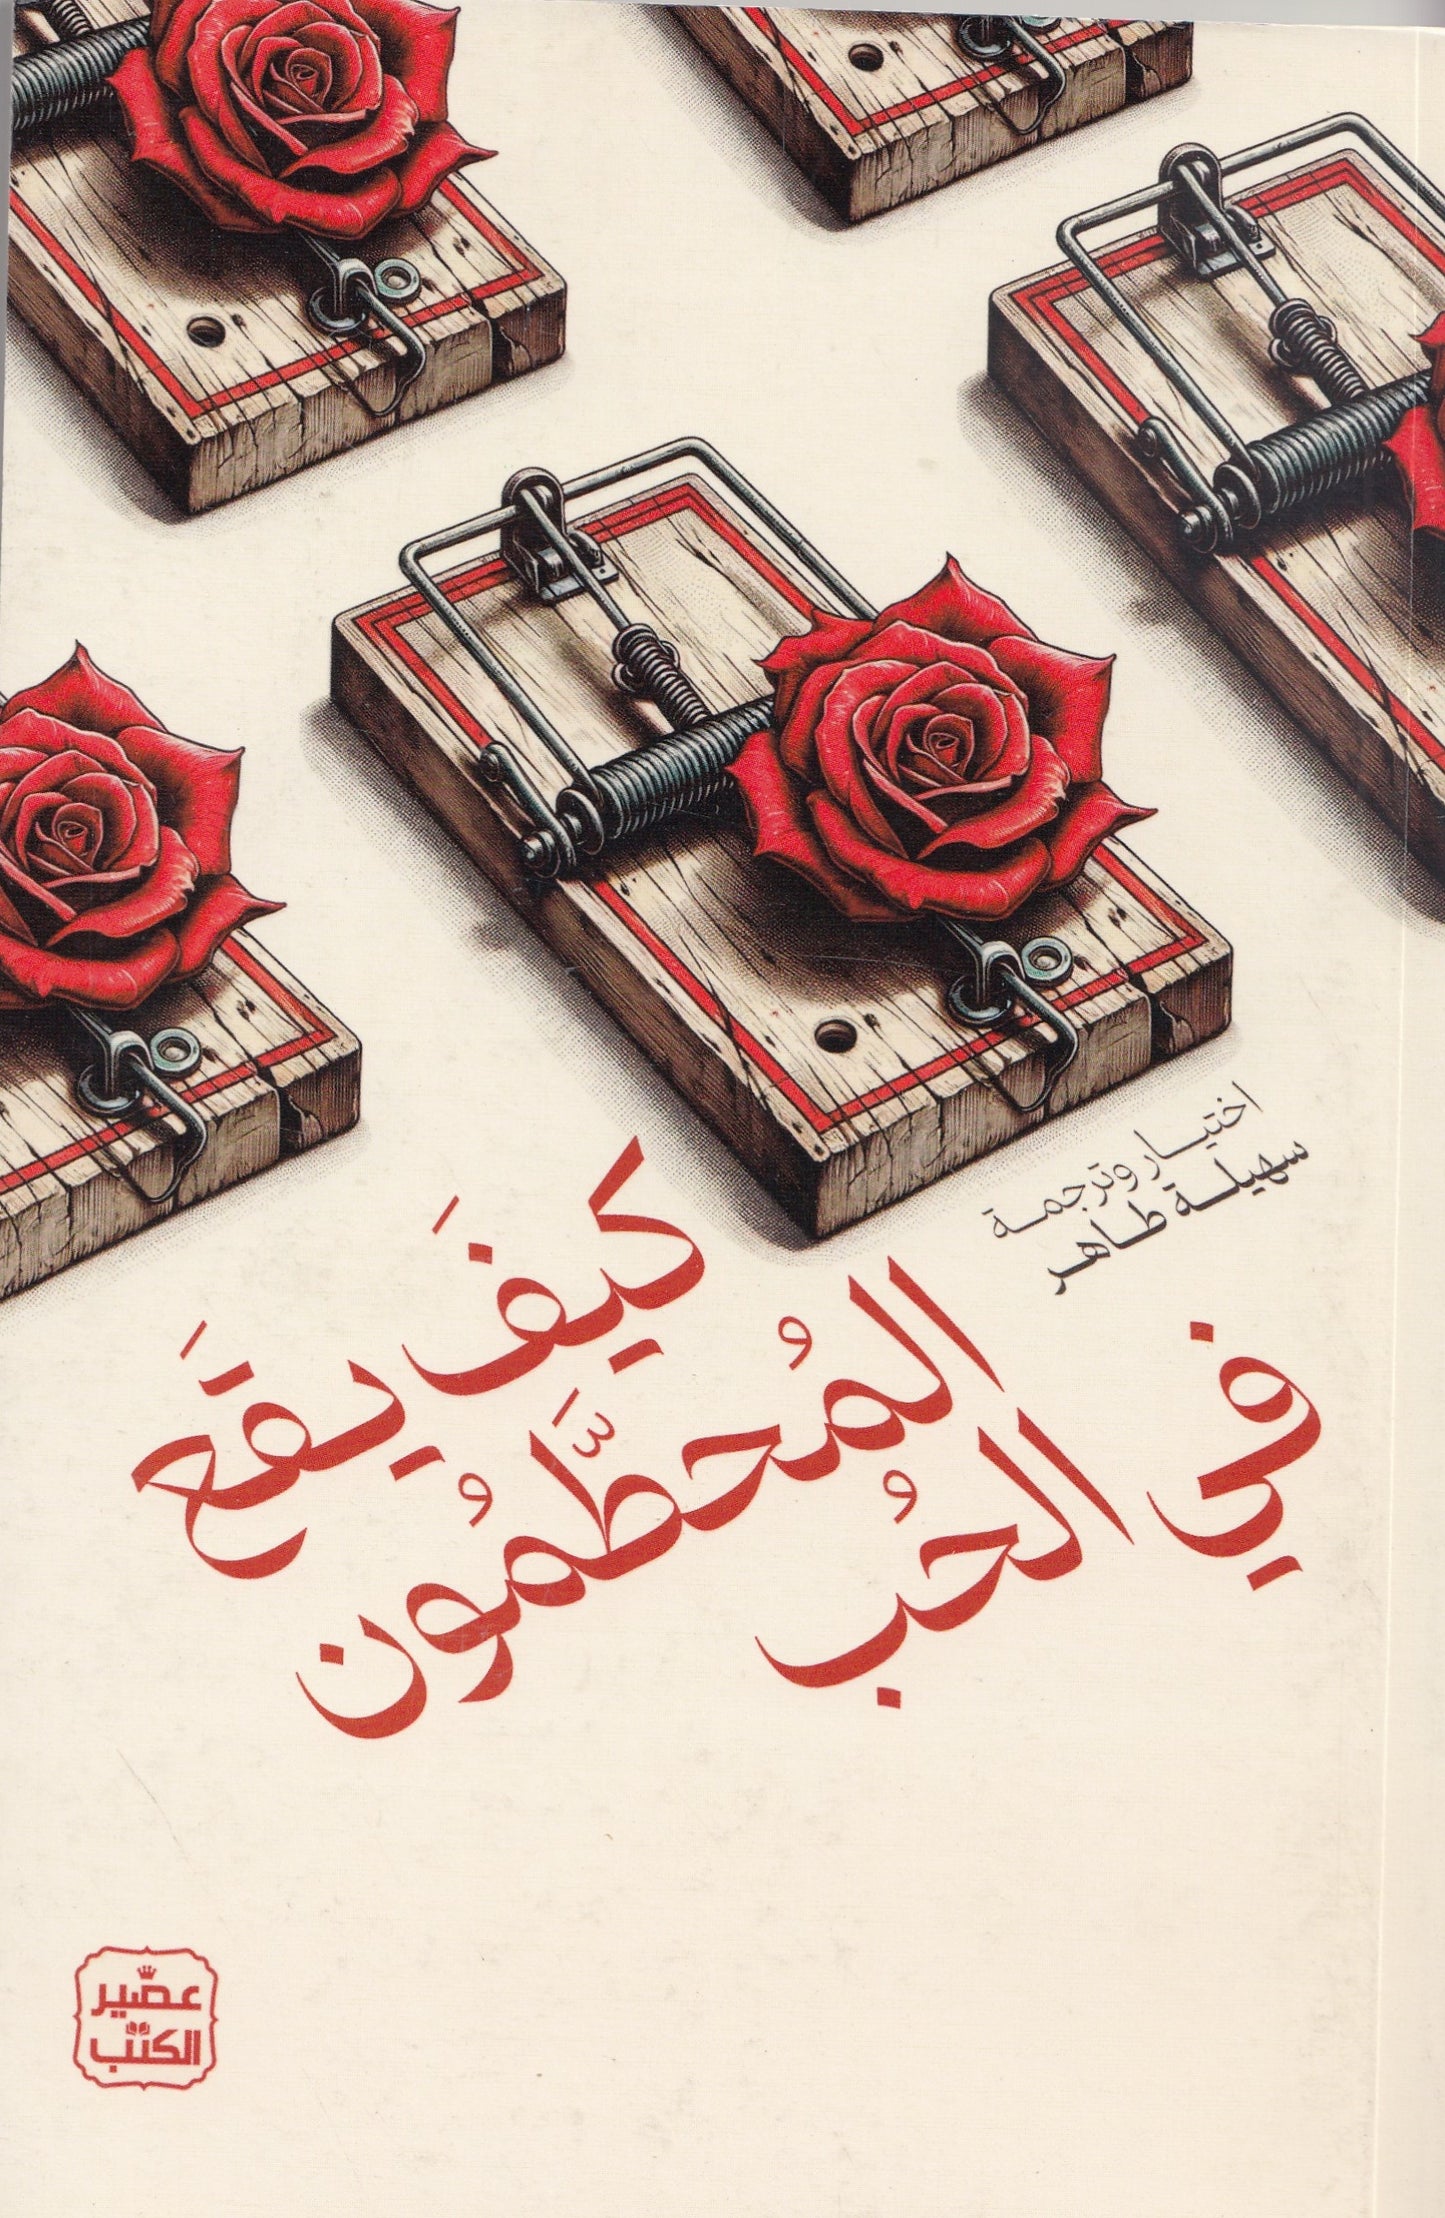 اختيار وترجمة
سهيلة طاهر
كيفَ يقعَ
المُحطَّمُون
في الحُب
عصير
الكتب